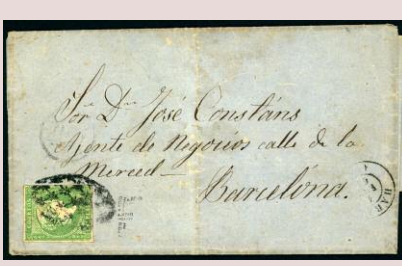 Sor Dn José Constáns
Agente de Negocios calle de la
Merced—
Barcelona.
HAB